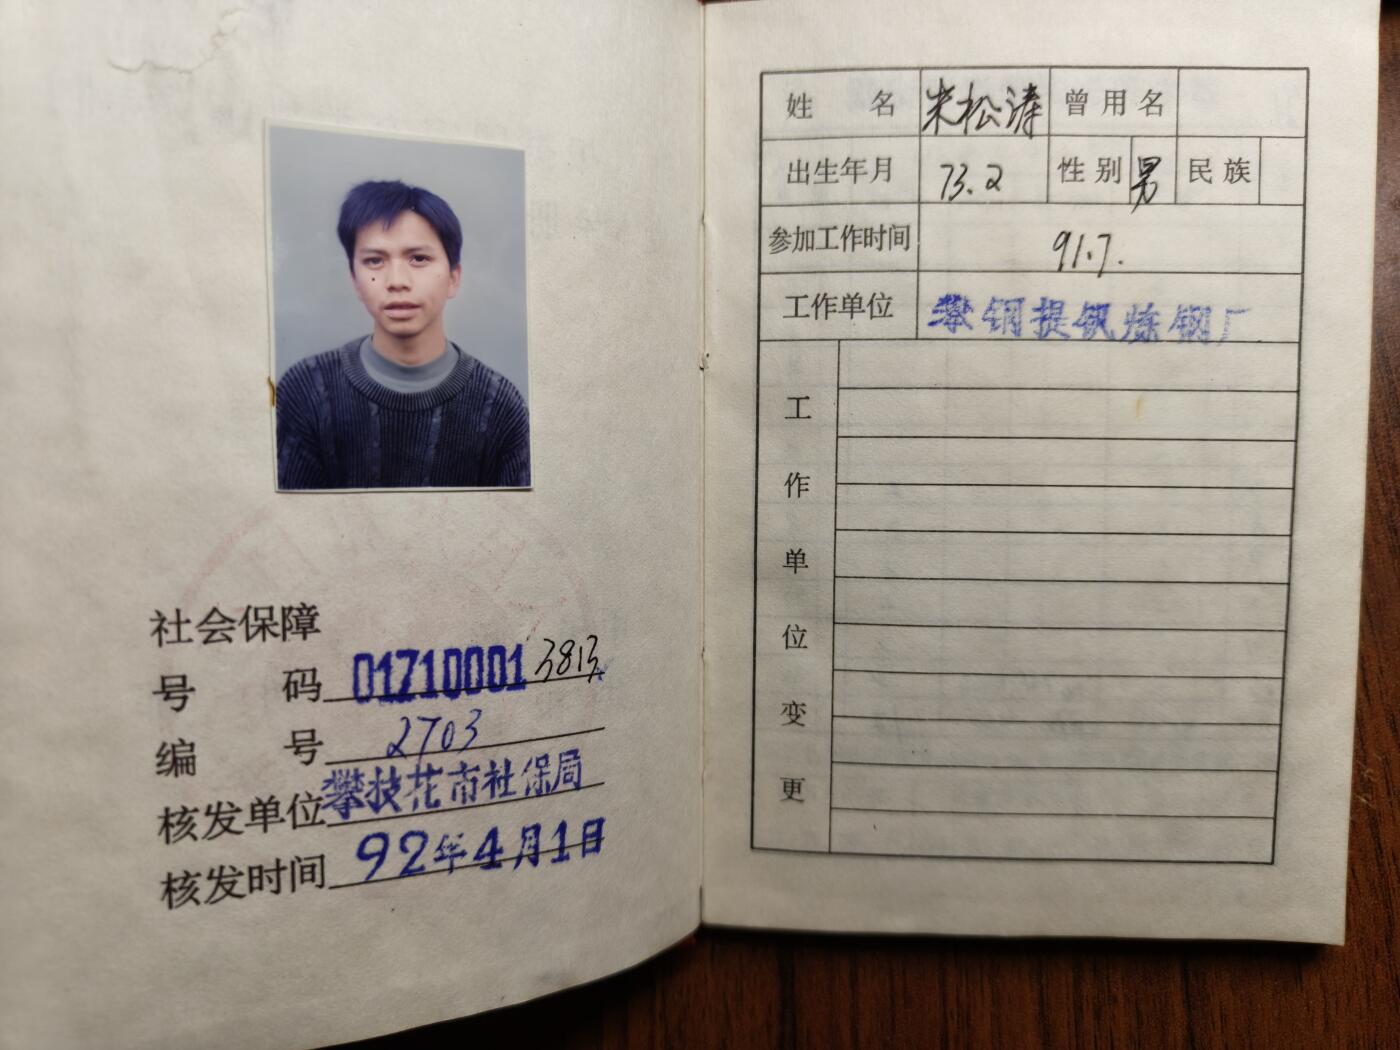 社会保障
号 码 017100013813
编 号 2703
核发单位 攀枝花市社保局
核发时间 92年4月1日
姓 名 米松涛 曾用名
出生年月 73.2 性别 男 民族
参加工作时间 91.7.
工作单位 攀钢提钒炼钢厂
工作单位变更